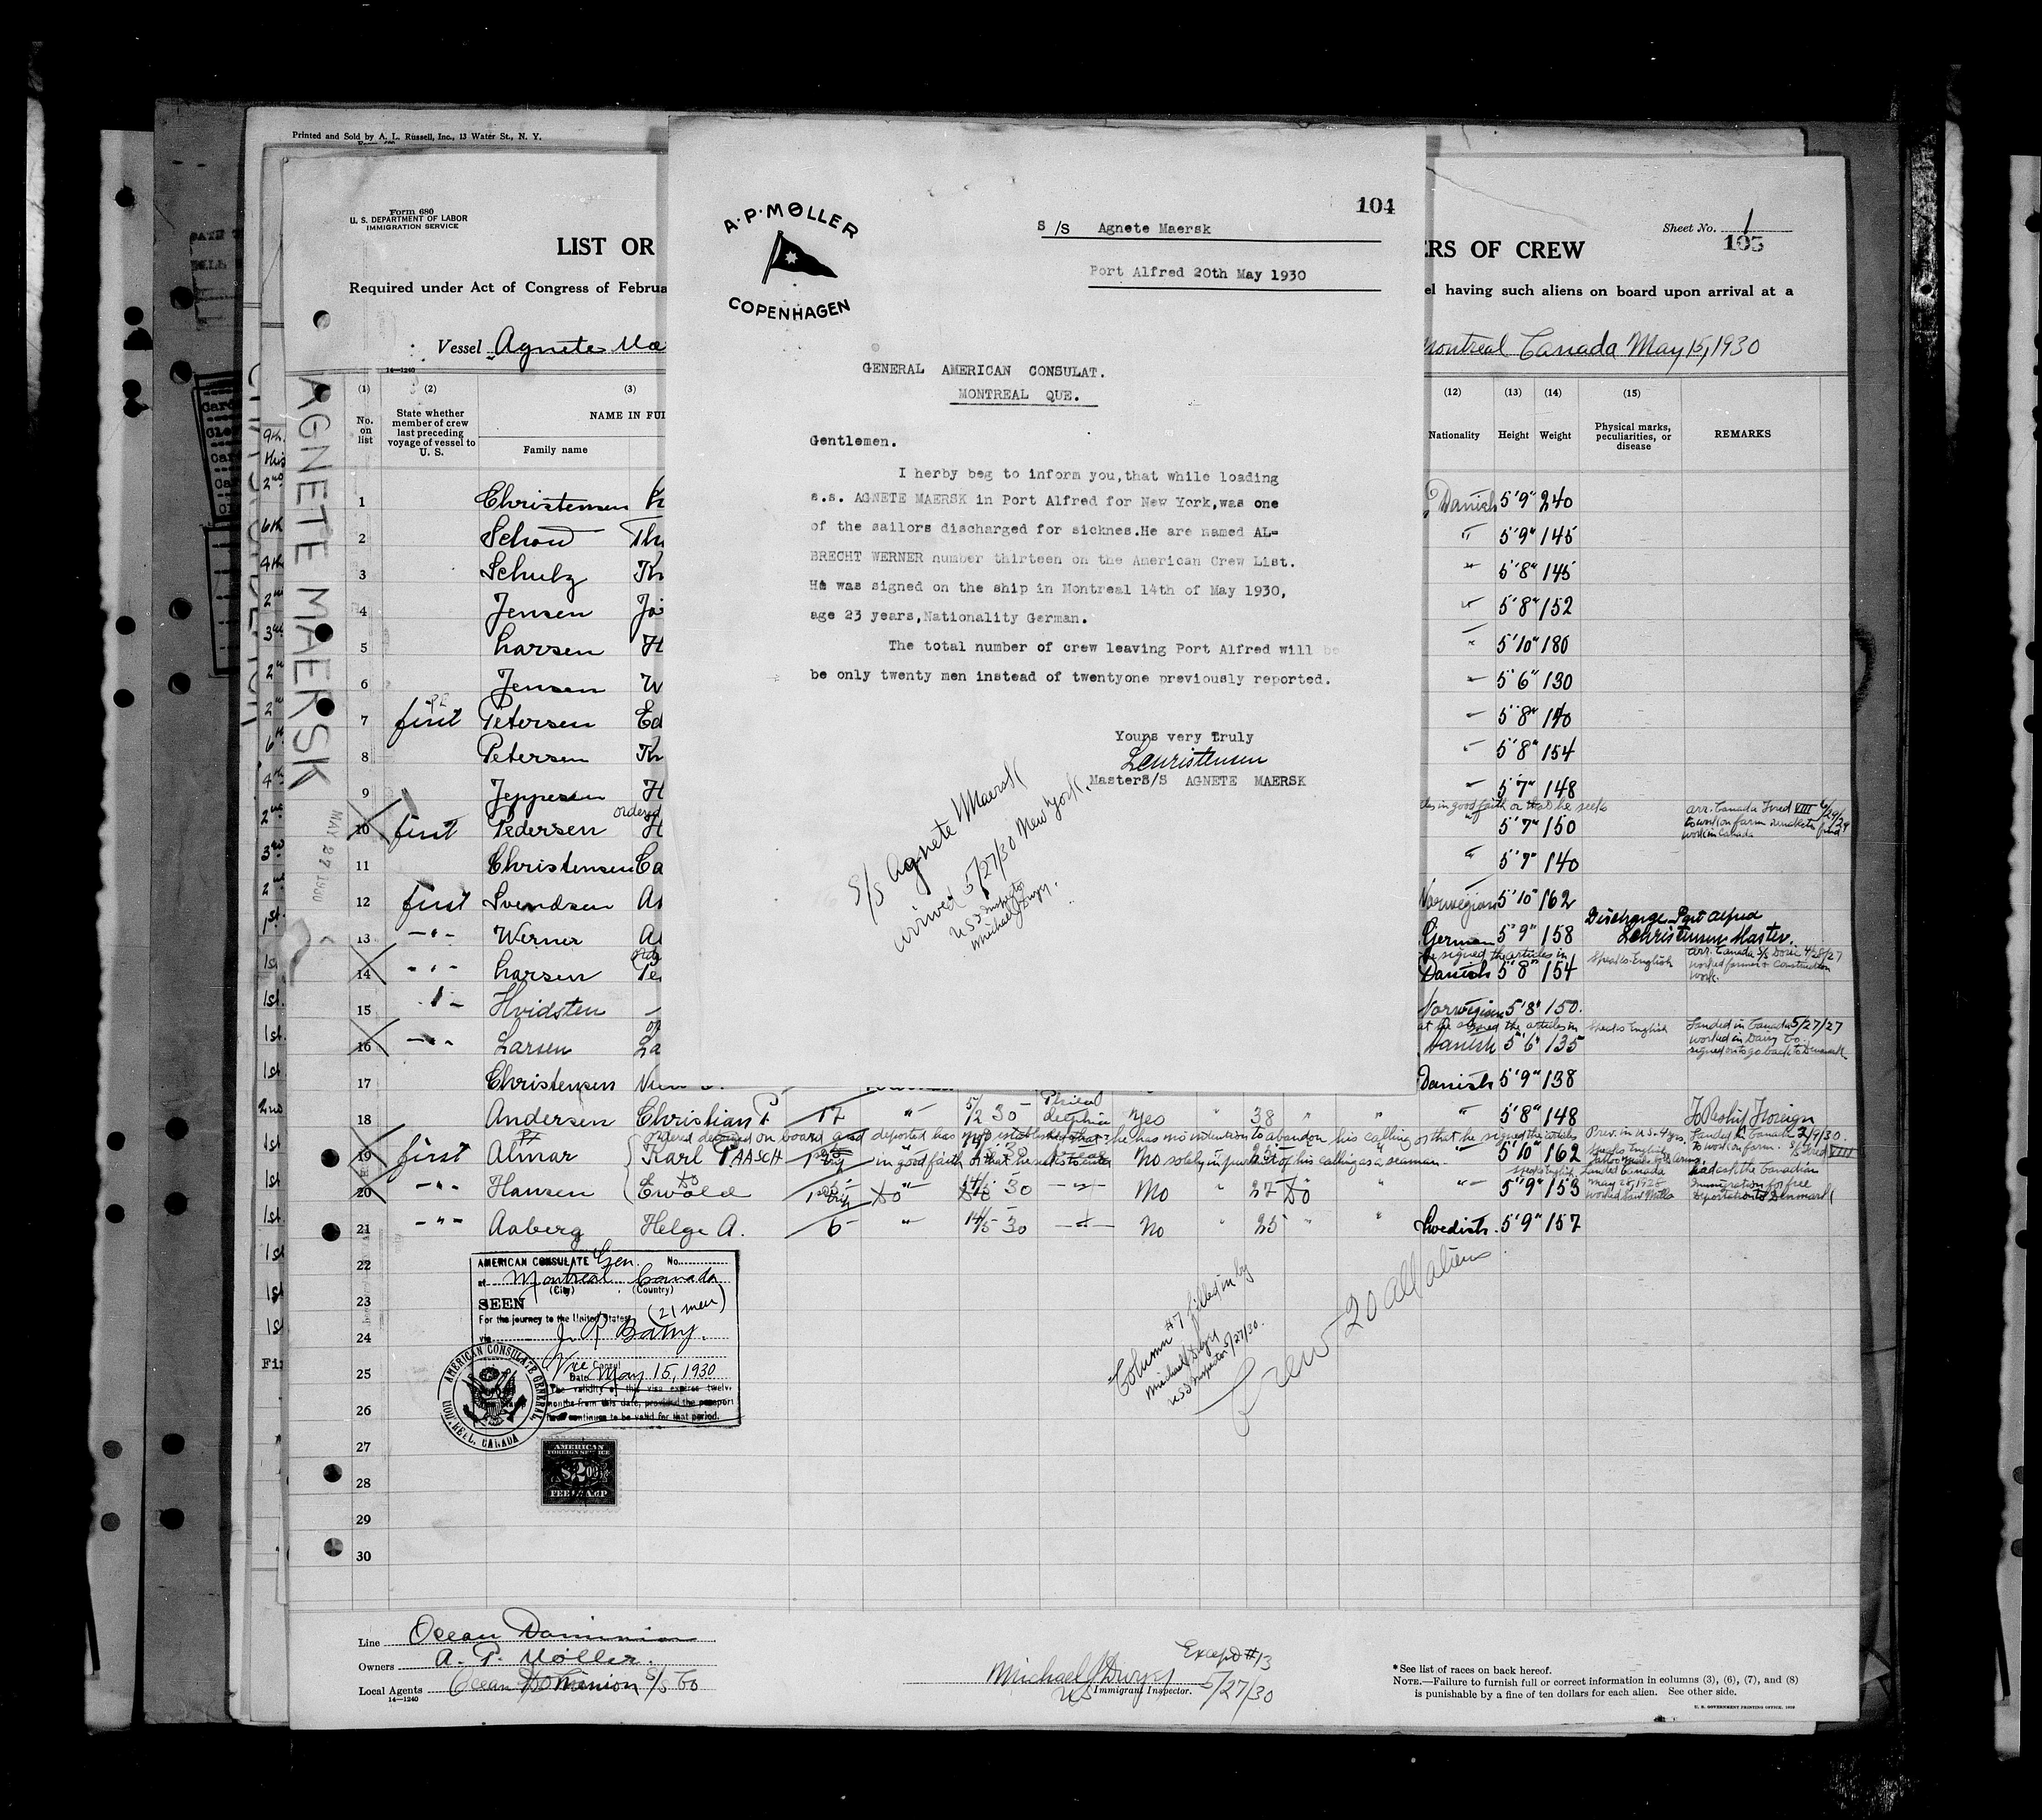 Printed and Sold by A. L. Russell, Inc., 13 Water St., N. Y.
Form 680
U. S. DEPARTMENT OF LABOR
IMMIGRATION SERVICE
LIST OR
ERS OF CREW
Sheet No. 1
105
Required under Act of Congress of Februa
el having such aliens on board upon arrival at a
Vessel Agnete Mae
Montreal Canada May 15, 1930
14—1240
104
A·P·MØLLER
COPENHAGEN
S/S Agnete Maersk
Port Alfred 20th May 1930
GENERAL AMERICAN CONSULAT.
MONTREAL QUE.
Gentlemen.
I herby beg to inform you,that while loading
s.s. AGNETE MAERSK in Port Alfred for New York,was one
of the sailors discharged for sicknes.He are named AL-
BRECHT WERNER number thirteen on the American Crew List.
He was signed on the ship in Montreal 14th of May 1930,
age 23 years,Nationality German.
The total number of crew leaving Port Alfred will be
be only twenty men instead of twentyone previously reported.
Yours very Truly
LChristensen
MasterS/S AGNETE MAERSK
S/S Agnete Maersk
arrived 5/27/30 New York.
US Inspector
Michael J Dwyer.
AGNETE MAERSK
MAY 27 1930
(1) (2) (3) (12) (13) (14) (15)
No. on list
State whether member of crew last preceding voyage of vessel to U. S.
NAME IN FUL
Family name
Nationality Height Weight
Physical marks, peculiarities, or disease
REMARKS
1 Christensen Danish 5'9" 240
2 Schou Th 5'9" 145
3 Schulz 5'8" 145
4 Jensen 5'8" 152
5 Larsen H 5'10" 186
6 Jensen W 5'6" 130
7 first Petersen Ed 5'8" 140
8 Petersen 5'8" 154
9 Jeppesen H 5'7" 148
ordered
des in good faith or that he seeks
10 first Pedersen H 5'7" 150
to work on farm
work in Canada
11 Christensen Ca 5'7" 140
12 first Svendsen Norwegian 5'10" 162
13 Werner Al German 5'9" 158
Discharge Port Alfred
LChristensen Master.
he signed the articles in
14 Larsen Danish 5'8" 154 speaks English
arr. Canada S/S Doric 4/28/27
worked farm + Construction
work.
15 Hvidsten Norwegian 5'8" 150.
at he signed the articles in
16 Larsen La Danish 5'6" 135 speaks English
Landed in Canada 5/27/27
worked in Dairy Co.
signed on to go back to Denmark
17 Christensen Danish 5'9" 138
18 Andersen Christian P. 17 " 5/2 30 Philadelphia Yes " 38 " " " 5'8" 148 To Reship Foreign
ordered detained on board and deported has not established that he has no intention to abandon his calling or that he signed the articles
19 first Almar Karl PAASCH in good faith or that he seeks to enter No solely in pursuit of his calling as a seaman 5'10" 162
Prev. in U.S. 4 yrs.
Landed in Canada
to work on farm.
20 Hansen Ewald Do 14/5 30 No 27 Do " 5'9" 153
speaks English Landed Canada
May 28, 1928
worked Saw Mills
had ask the Canadian
Immigration for free
Deportation to Denmark
21 Aaberg Helge A. 6 " 14/5 30 No " 25 " " Swedish 5'9" 157
22
23
24
25
26
27
28
29
30
AMERICAN CONSULATE Gen. No.
at Montreal Canada
(City) (Country)
SEEN (21 men)
For the journey to the United States
via
Vice Consul
Date May 15, 1930
The validity of this visa expires twelve
months from this date, provided the passport
continues to be valid for that period.
AMERICAN CONSULATE GENERAL
MONTREAL, CANADA
AMERICAN
FOREIGN SERVICE
$2.00
FEE STAMP
Column #7 filled in by
Michael J Dwyer
US Inspector 5/27/30.
Crew 20 all aliens
Line Ocean Dominion
Owners A. P. Möller.
Local Agents Ocean Dominion S/S Co
14—1240
Except #13
Michael J Dwyer 5/27/30
US Immigrant Inspector.
*See list of races on back hereof.
NOTE.—Failure to furnish full or correct information in columns (3), (6), (7), and (8)
is punishable by a fine of ten dollars for each alien. See other side.
U. S. GOVERNMENT PRINTING OFFICE